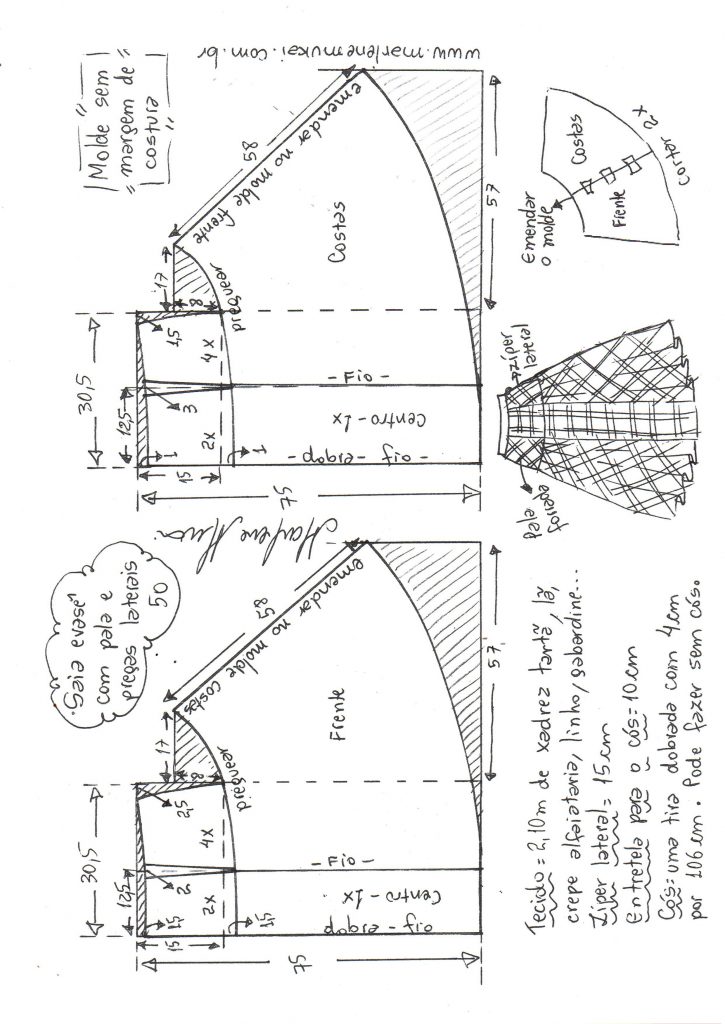 www.marlenemukai.com.br
"Molde sem
margem de
costura"
Saia evasê
com pala e
pregas laterais
50
30,5
12,5
15
1,5
2
2,5
1,5
2x
4x
8
17
58
emendar no molde
costas
preguear
Frente
- Fio -
Centro - 1x
dobra - fio
75
57
Marlene Mukai
30,5
12,5
15
1
3
1,5
1
2x
4x
8
17
58
emendar no molde frente
preguear
Costas
- Fio -
Centro - 1x
- dobra - fio -
75
57
Emendar
o molde
Costas
Frente
Cortar 2x
zíper
lateral
pala
forrada
Tecido = 2,10m de xadrez tartã, lã,
crepe alfaiataria, linho, gabardine...
Zíper lateral = 15cm
Entretela para o cós = 10cm
Cós = uma tira dobrada com 4cm
por 106cm. Pode fazer sem cós.